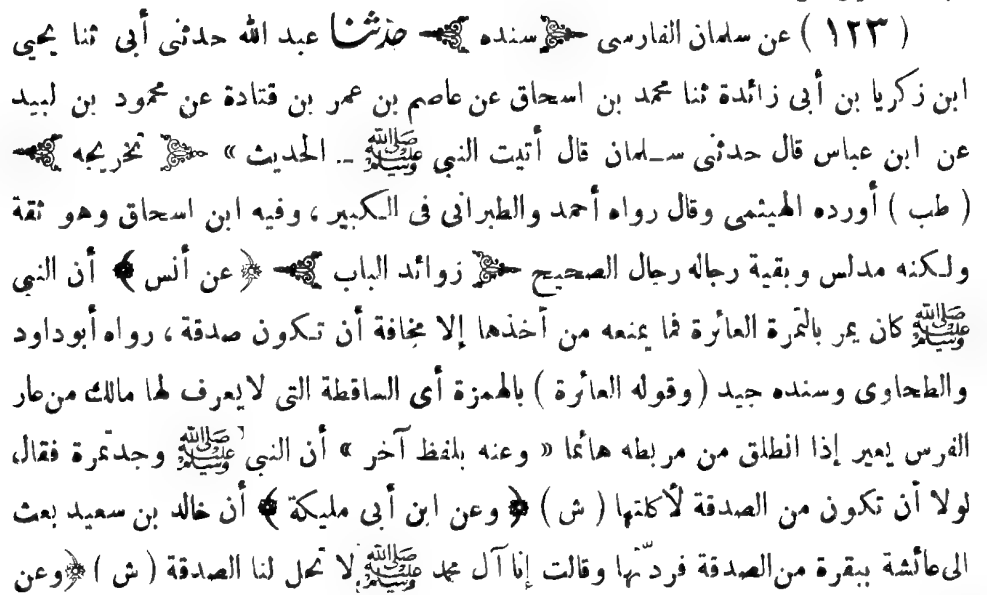 ( ١٢٣ ) عن سلمان الفارسى ﴿ سنده ﴾ حدثنا عبد الله حدثنى أبى ثنا يحيى
ابن زكريا بن أبى زائدة ثنا محمد بن اسحاق عن عاصم بن عمر بن قتادة عن محمود بن لبيد
عن ابن عباس قال حدثنى سلمان قال أتيت النبى ﷺ .. الحديث » ﴿ تخريجه ﴾
( طب ) أورده الهيثمى وقال رواه أحمد والطبرانى فى الكبير ، وفيه ابن اسحاق وهو ثقة
ولكنه مدلس وبقية رجاله رجال الصحيح ﴿ زوائد الباب ﴾ ﴿ عن أنس ﴾ أن النبى
ﷺ كان يمر بالتمرة العائرة فما يمنعه من أخذها إلا مخافة أن تكون صدقة ، رواه أبوداود
والطحاوى وسنده جيد ( وقوله العائرة ) بالهمزة أى الساقطة التى لايعرف لها مالك من عار
الفرس يعير إذا انطلق من مربطه هائما « وعنه بلفظ آخر » أن النبى ﷺ وجدتمرة فقال،
لولا أن تكون من الصدقة لأكلتها ( ش ) ﴿ وعن ابن أبى مليكة ﴾ أن خالد بن سعيد بعث
الى عائشة ببقرة من الصدقة فردّتها وقالت إنا آل محمد ﷺ لا تحل لنا الصدقة ( ش ) ﴿ وعن